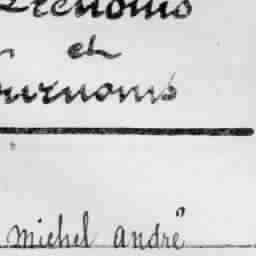 Prénoms
et
Surnoms
Michel André